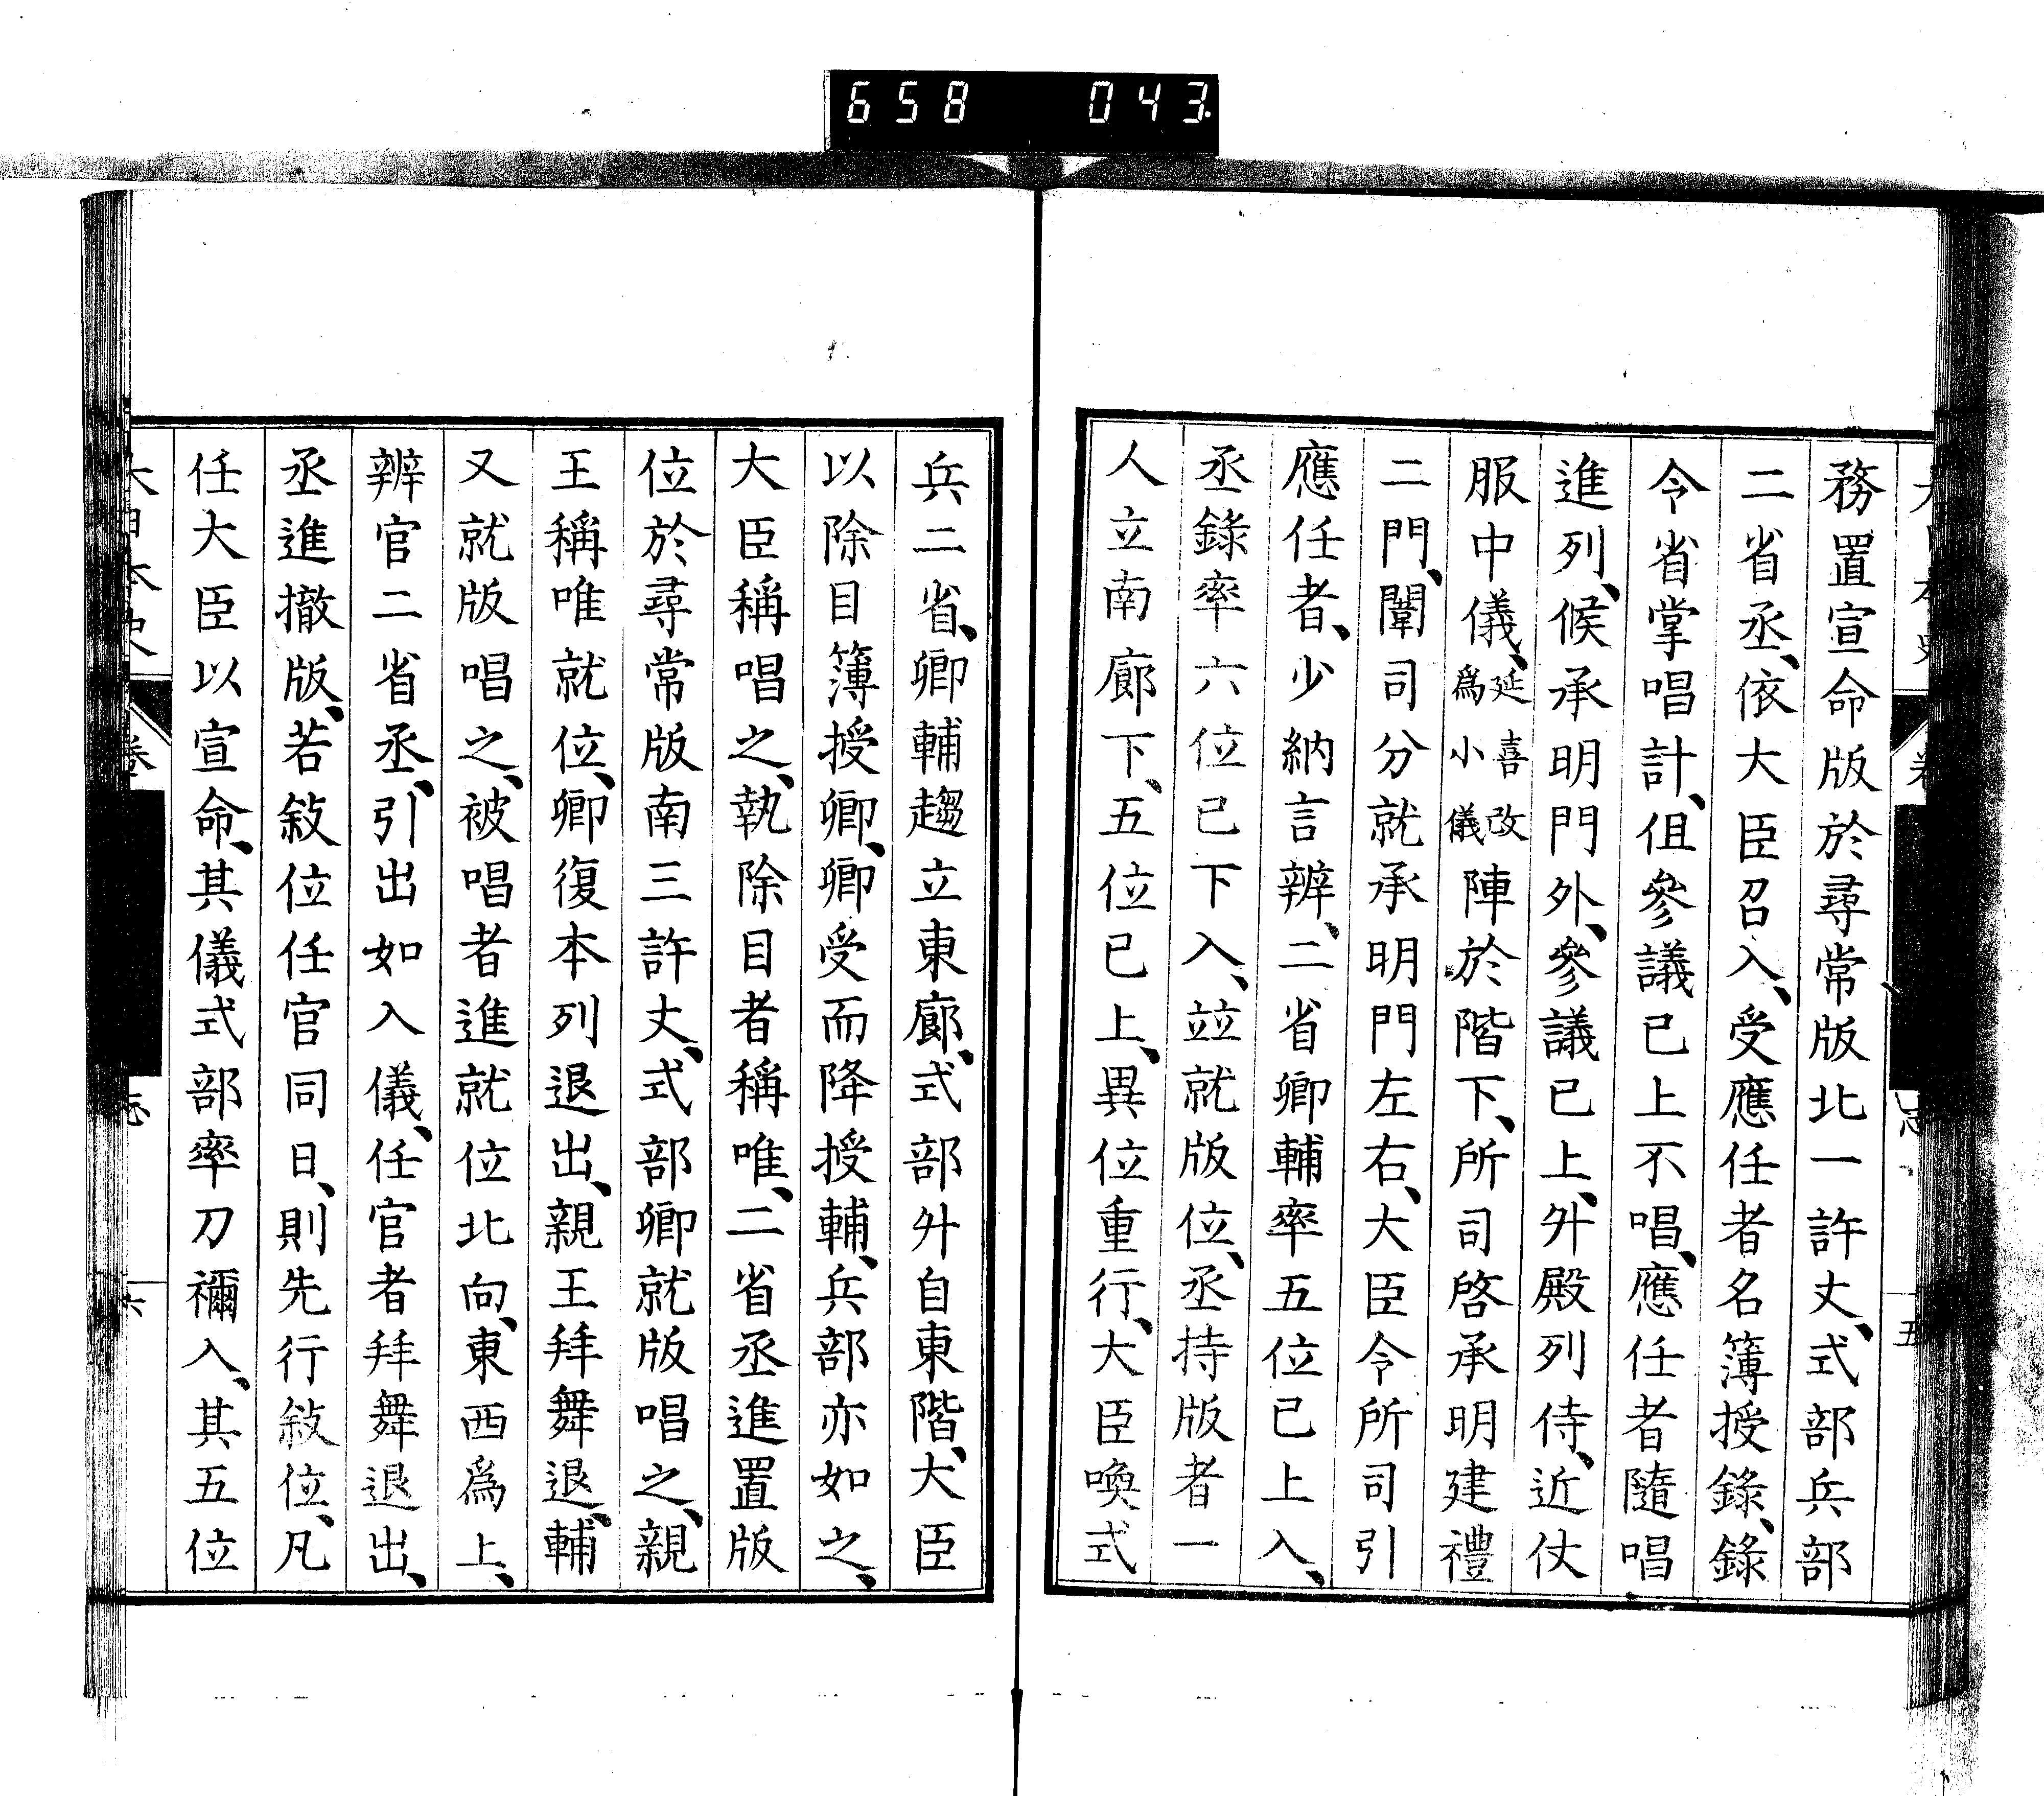 658 043
務置宣命版於尋常版北一許丈、式部兵部
二省丞、依大臣召入、受應任者名簿授錄、錄
令省掌唱計、但參議已上不唱、應任者隨唱
進列、候承明門外、參議已上、升殿列侍、近仗
服中儀、延喜改爲小儀陣於階下、所司啓承明建禮
二門、闈司分就承明門左右、大臣令所司引
應任者、少納言辨、二省卿輔率五位已上入、
丞錄率六位已下入、竝就版位、丞持版者一
人立南廊下、五位已上、異位重行、大臣喚式
兵二省、卿輔趨立東廊、式部升自東階、大臣
以除目簿授卿、卿受而降授輔、兵部亦如之、
大臣稱唱之、執除目者稱唯、二省丞進置版
位於尋常版南三許丈、式部卿就版唱之、親
王稱唯就位、卿復本列退出、親王拜舞退、輔
又就版唱之、被唱者進就位北向、東西爲上、
辨官二省丞、引出如入儀、任官者拜舞退出、
丞進撤版、若敍位任官同日、則先行敍位、凡
任大臣以宣命、其儀式部率刀禰入、其五位